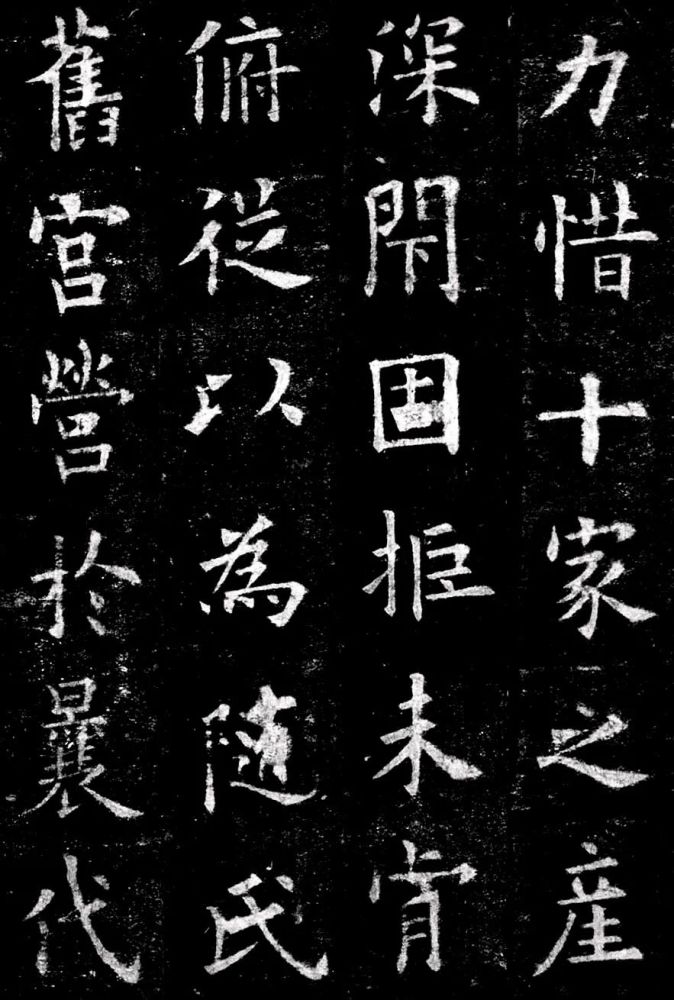 力惜十家之産
深閇固拒未肯
俯從以為随氏
舊宫營於曩代